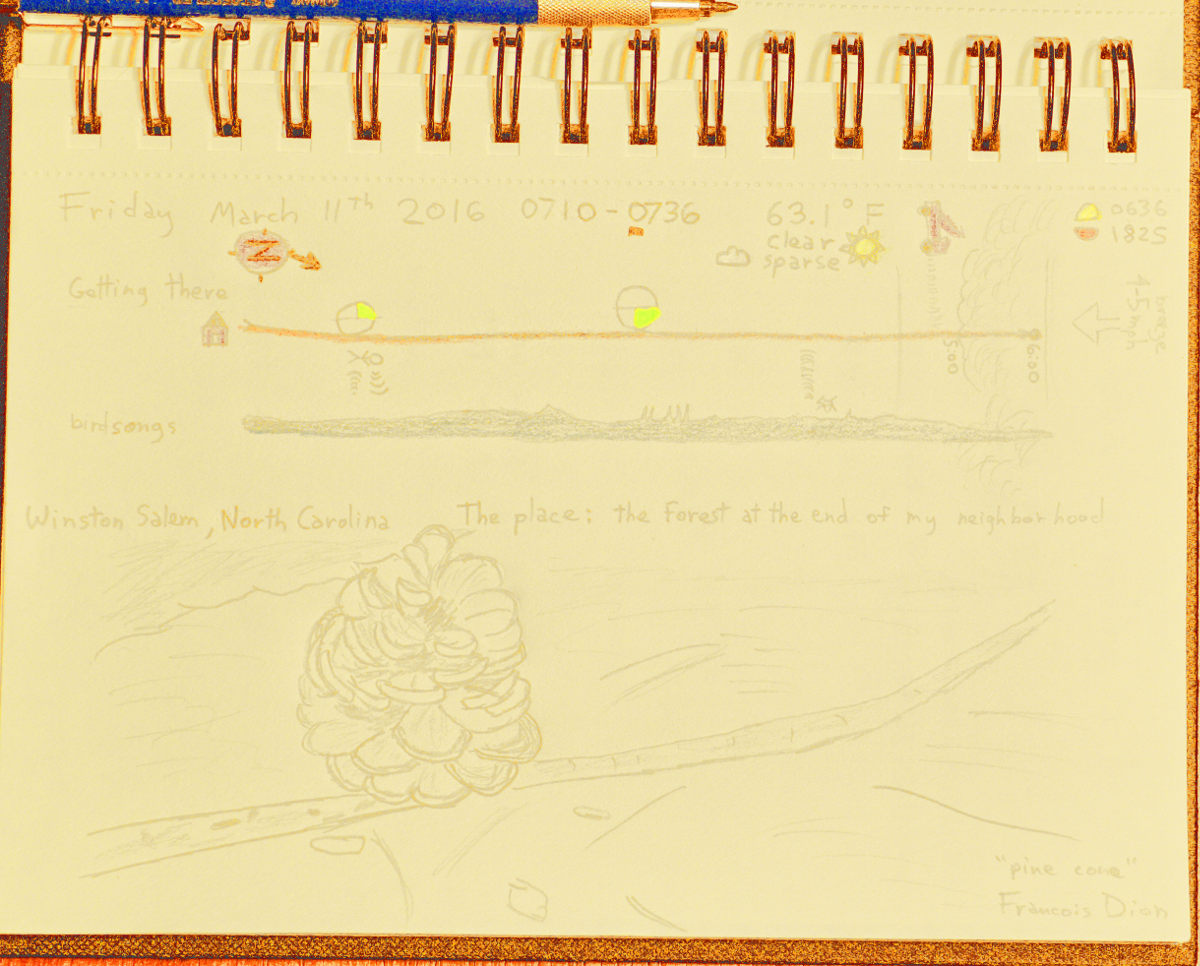 Friday March 11th 2016 0710-0736 63.1°F 0636
1825
N
clear
sparse
Getting there
4-5mph
breeze
5:00
6:00
birdsongs
Winston Salem, North Carolina The place: the Forest at the end of my neighborhood
"pine cone"
Francois Dion